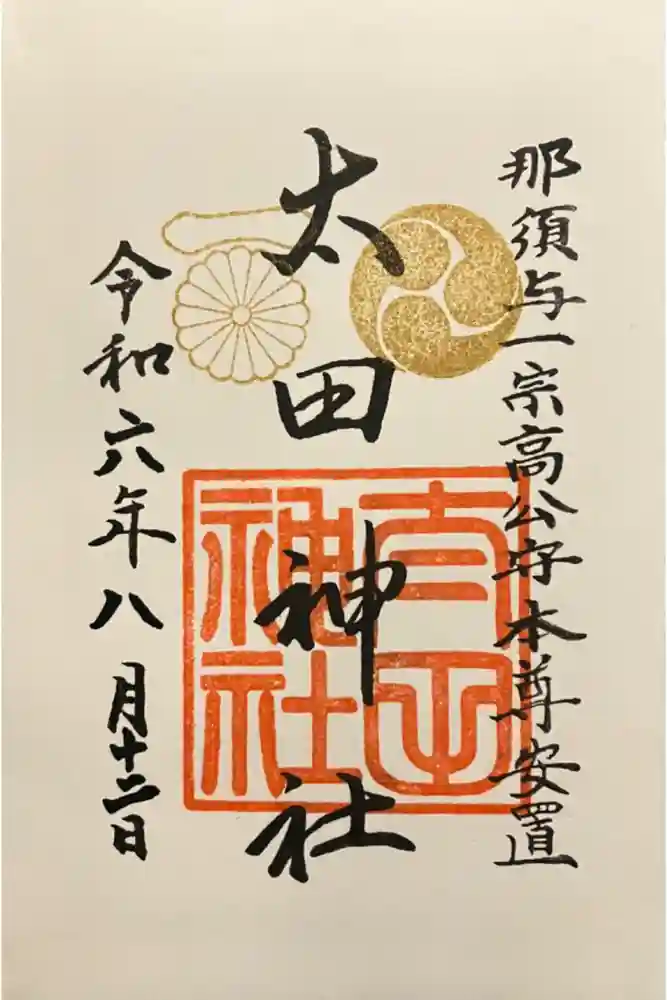 那須与一宗高公守本尊安置
太田神社
令和六年八月十二日
太田神社